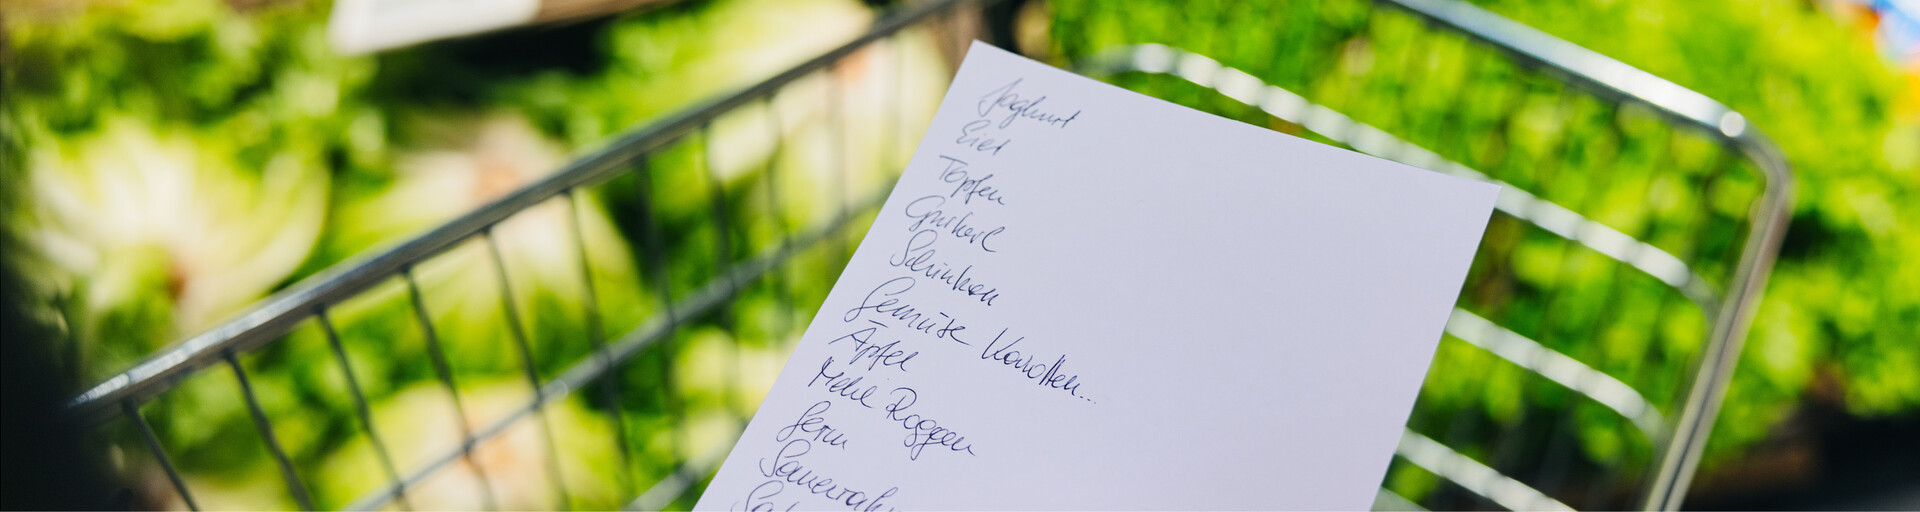 Joghurt
Eier
Topfen
Gurkerl
Schinken
Gemüse Karotten...
Äpfel
Mehl Roggen
Germ
Sauerrah